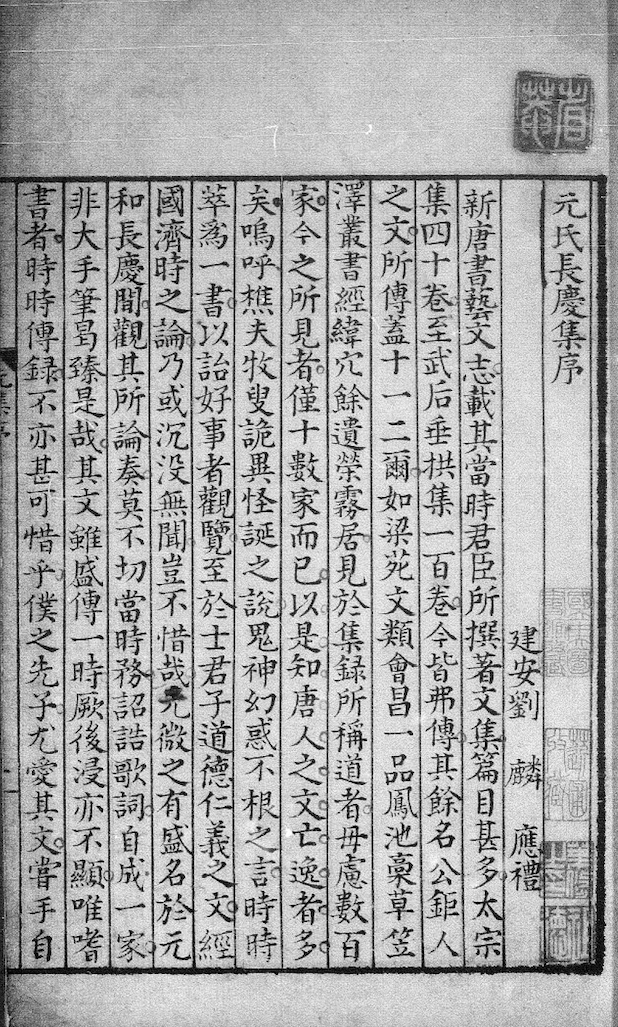 元氏長慶集序
建安劉 麟 應禮
新唐書藝文志載其當時君臣所撰著文集篇目甚多太宗
集四十卷至武后垂拱集一百卷今皆弗傳其餘名公鉅人
之文所傳蓋十一二爾如梁苑文類會昌一品鳳池稾草笠
澤叢書經緯穴餘遺榮霧居見於集録所稱道者毋慮數百
家今之所見者僅十數家而已以是知唐人之文亡逸者多
矣嗚呼樵夫牧叟詭異怪誕之說鬼神幻惑不根之言時時
萃爲一書以詒好事者觀覽至於士君子道德仁義之文經
國濟時之論乃或沉没無聞豈不惜哉元微之有盛名於元
和長慶間觀其所論奏莫不切當時務詔誥歌詞自成一家
非大手筆曷臻是哉其文雖盛傳一時厥後浸亦不顯唯嗜
書者時時傳録不亦甚可惜乎僕之先子尤愛其文嘗手自
元集序